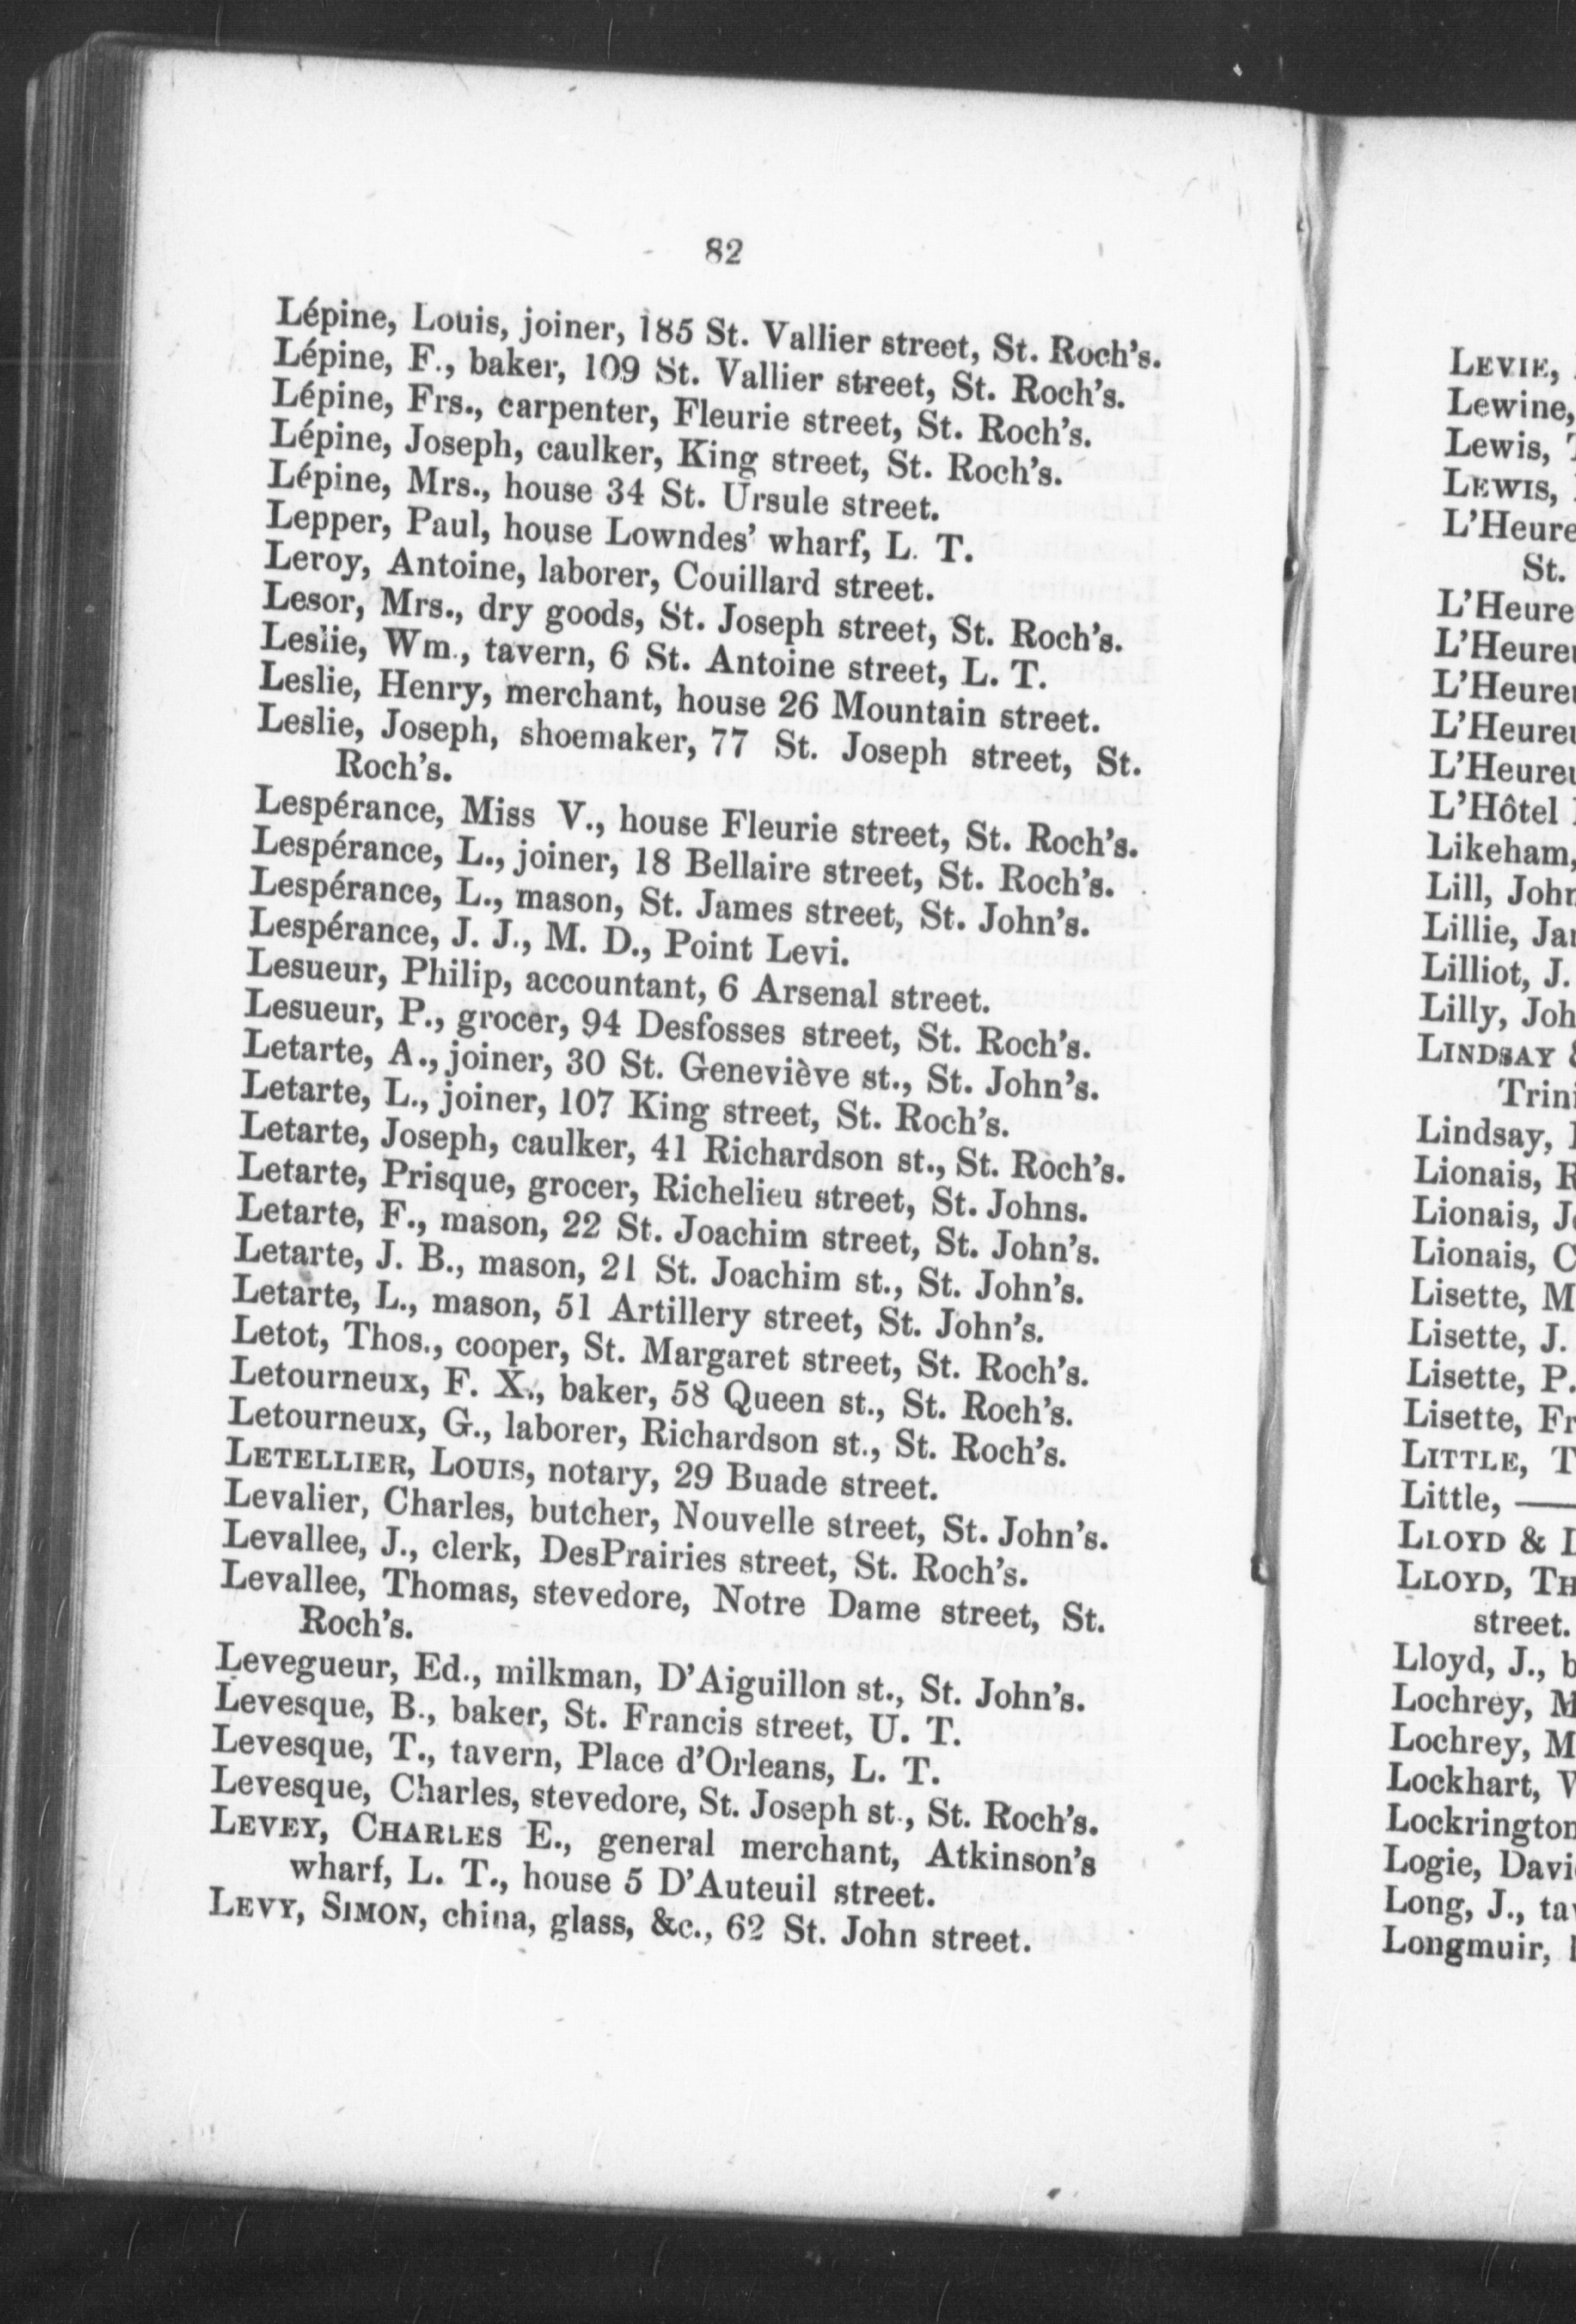 82
Lépine, Louis, joiner, 185 St. Vallier street, St. Roch's.
Lépine, F., baker, 109 St. Vallier street, St. Roch's.
Lépine, Frs., carpenter, Fleurie street, St. Roch's.
Lépine, Joseph, caulker, King street, St. Roch's.
Lépine, Mrs., house 34 St. Ursule street.
Lepper, Paul, house Lowndes' wharf, L. T.
Leroy, Antoine, laborer, Couillard street.
Lesor, Mrs., dry goods, St. Joseph street, St. Roch's.
Leslie, Wm., tavern, 6 St. Antoine street, L. T.
Leslie, Henry, merchant, house 26 Mountain street.
Leslie, Joseph, shoemaker, 77 St. Joseph street, St.
Roch's.
Lespérance, Miss V., house Fleurie street, St. Roch's.
Lespérance, L., joiner, 18 Bellaire street, St. Roch's.
Lespérance, L., mason, St. James street, St. John's.
Lespérance, J. J., M. D., Point Levi.
Lesueur, Philip, accountant, 6 Arsenal street.
Lesueur, P., grocer, 94 Desfosses street, St. Roch's.
Letarte, A., joiner, 30 St. Geneviève st., St. John's.
Letarte, L., joiner, 107 King street, St. Roch's.
Letarte, Joseph, caulker, 41 Richardson st., St. Roch's.
Letarte, Prisque, grocer, Richelieu street, St. Johns.
Letarte, F., mason, 22 St. Joachim street, St. John's.
Letarte, J. B., mason, 21 St. Joachim st., St. John's.
Letarte, L., mason, 51 Artillery street, St. John's.
Letot, Thos., cooper, St. Margaret street, St. Roch's.
Letourneux, F. X., baker, 58 Queen st., St. Roch's.
Letourneux, G., laborer, Richardson st., St. Roch's.
LETELLIER, LOUIS, notary, 29 Buade street.
Levalier, Charles, butcher, Nouvelle street, St. John's.
Levallee, J., clerk, DesPrairies street, St. Roch's.
Levallee, Thomas, stevedore, Notre Dame street, St.
Roch's.
Levegueur, Ed., milkman, D'Aiguillon st., St. John's.
Levesque, B., baker, St. Francis street, U. T.
Levesque, T., tavern, Place d'Orleans, L. T.
Levesque, Charles, stevedore, St. Joseph st., St. Roch's.
LEVEY, CHARLES E., general merchant, Atkinson's
wharf, L. T., house 5 D'Auteuil street.
LEVY, SIMON, china, glass, &c., 62 St. John street.
LEVIE,
Lewine,
Lewis,
LEWIS,
L'Heure
St.
L'Heure
L'Heure
L'Heure
L'Heure
L'Heure
L'Hôtel
Likeham,
Lill, John
Lillie, Ja
Lilliot, J.
Lilly, Joh
LINDSAY
Trini
Lindsay,
Lionais, R
Lionais, J
Lionais, C
Lisette, M
Lisette, J.
Lisette, P.
Lisette, Fr
LITTLE, T
Little, ——
LLOYD &
LLOYD, TH
street.
Lloyd, J., b
Lochrey, M
Lochrey, M
Lockhart,
Lockrington
Logie, Davi
Long, J., ta
Longmuir,